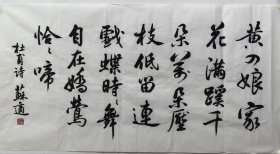 黄四娘家
花满蹊千
朵万朵压
枝低留连
戏蝶时々舞
自在嬌莺
恰々啼
杜甫诗 蘇適